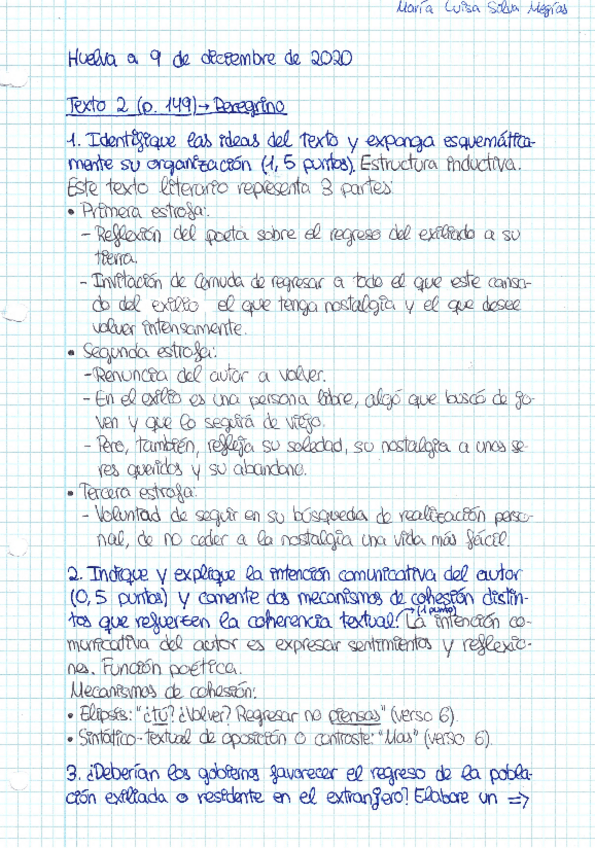 María Luisa Silva Megías
Huelva a 9 de diciembre de 2020
Texto 2 (p. 149) → Peregrino
1. Identifique las ideas del texto y exponga esquemática-
mente su organización (1,5 puntos). Estructura inductiva.
Este texto literario representa 3 partes:
• Primera estrofa:
- Reflexión del poeta sobre el regreso del exiliado a su
tierra.
- Invitación de Cernuda de regresar a todo el que este cansa-
do del exilio el que tenga nostalgia y el que desee
volver intensamente.
• Segunda estrofa:
- Renuncia del autor a volver.
- En el exilio es una persona libre, algo que buscó de jo-
ven y que lo seguirá de viejo.
- Pero, también, refleja su soledad, su nostalgia a unos se-
res queridos y su abandono.
• Tercera estrofa:
- Voluntad de seguir en su búsqueda de realización perso-
nal, de no ceder a la nostalgia una vida más fácil.
2. Indique y explique la intención comunicativa del autor
(0,5 puntos) y comente dos mecanismos de cohesión distin-
tos que refuercen la coherencia textual. (1 punto) La intención co-
municativa del autor es expresar sentimientos y reflexio-
nes. Función poética.
Mecanismos de cohesión:
• Elipsis: "¿Tú? ¿Volver? Regresar no piensas" (verso 6).
• Sintático-textual de aposición o contraste: "Mas" (verso 6).
3. ¿Deberían los gobiernos favorecer el regreso de la pobla-
ción exiliada o residente en el extranjero? Elabore un =>